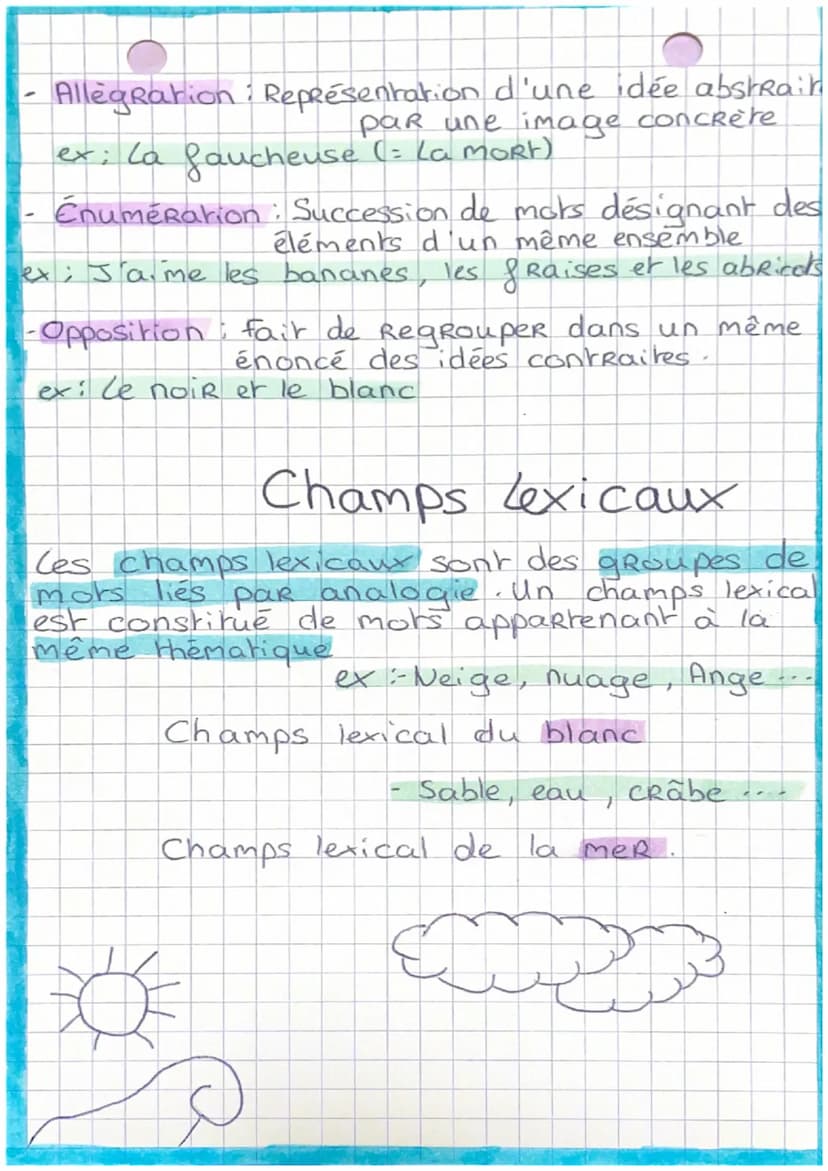 - Allègration : Représentation d'une idée abstrait
par une image concrète
ex : La faucheuse (= La mort)
- Énumération : Succession de mots désignant des
éléments d'un même ensemble
ex : J'aime les bananes, les fraises et les abricots
- Opposition : fait de Regrouper dans un même
énoncé des idées contraites.
ex : Le noir et le blanc
Champs Lexicaux
Les champs lexicaux sont des groupes de
mots liés par analogie. Un champs lexical
est constitué de mots appartenant à la
même thématique
ex :- Neige, nuage, Ange ...
Champs lexical du blanc
- Sable, eau, crâbe ....
Champs lexical de la mer.